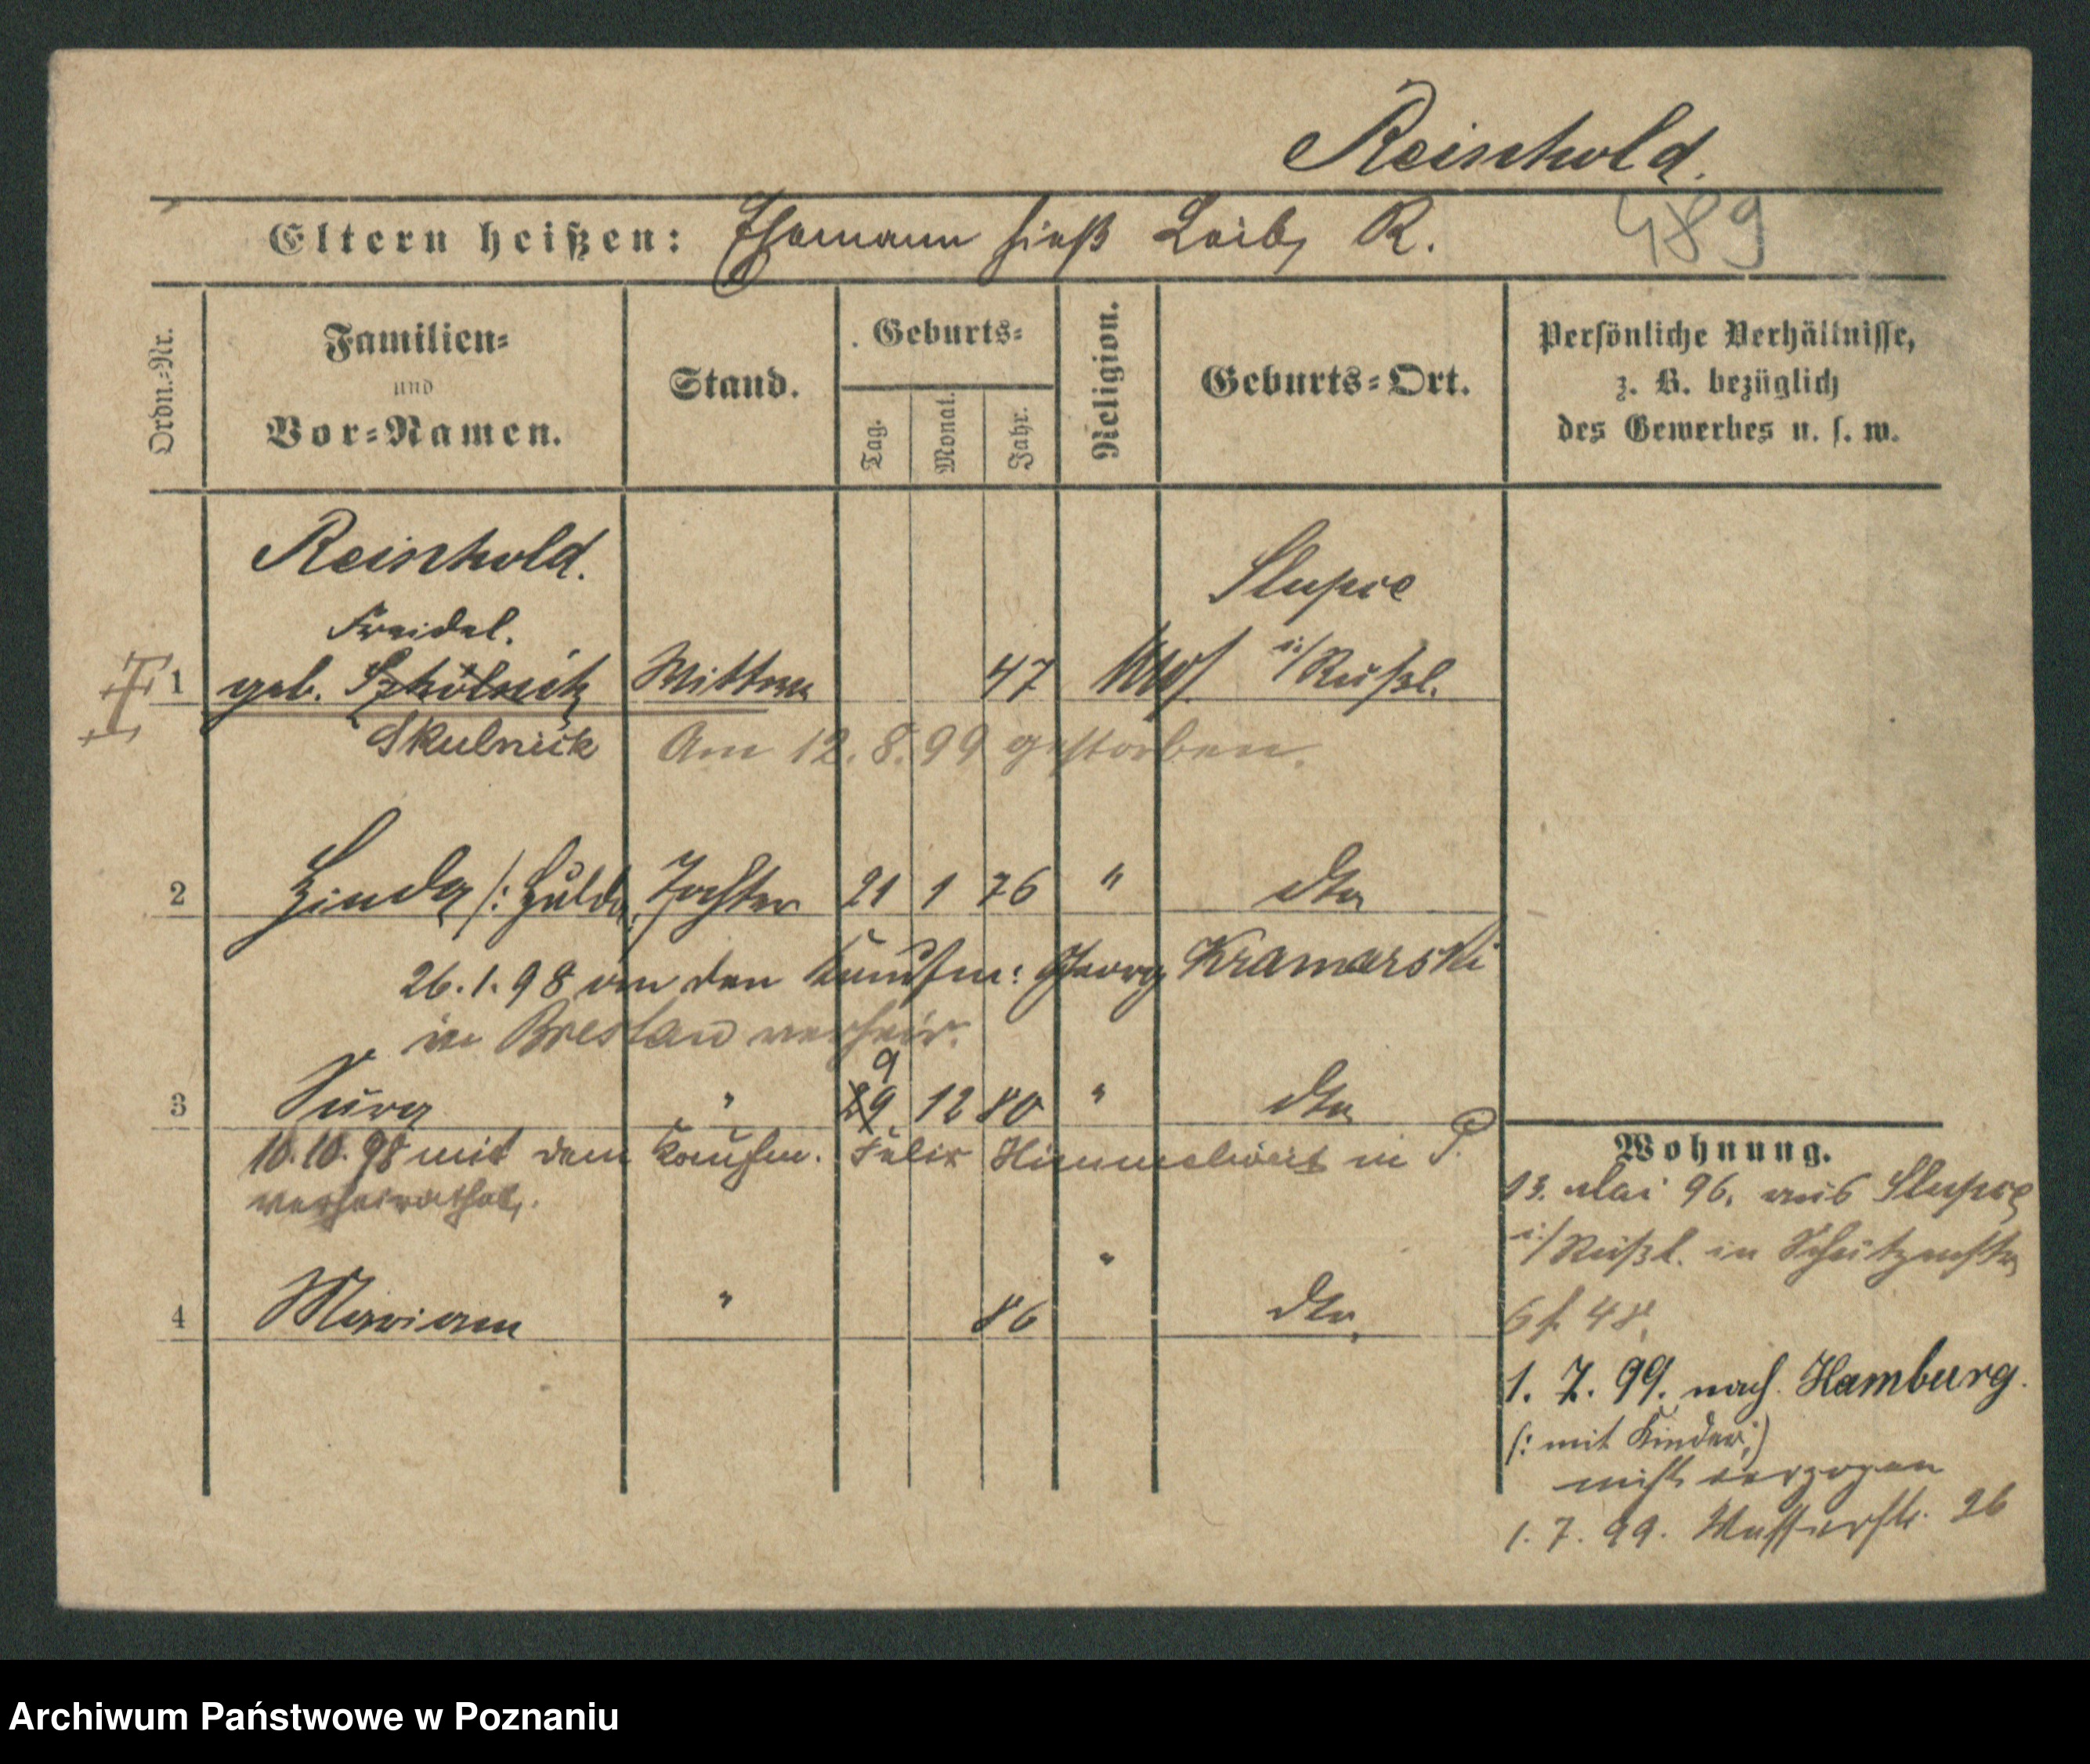 Reinhold.
Eltern heißen: Ehemann hieß Leib R.
489
Ordn.=Nr.
Familien=
und
Vor=Namen.
Stand.
Geburts=
Tag.
Monat.
Jahr.
Religion.
Geburts=Ort.
Persönliche Verhältnisse,
z. B. bezüglich
des Gewerbes u. s. w.
Reinhold.
Slupce
Freidel.
1 geb. Szkolnik Wittwe 47 mos. i/Rußl.
Skulnick Am 12. 8. 99 gestorben.
2 Hinda /: Hulda Tochter 21 1 76 " dto
26. 1. 98 an den Kaufm: Georg Kramarski
in Breslau verheir.
9
3 Sura " 29 12 80 " dto
10. 10. 98 mit dem Kaufm. Felix in P.
verheirathet.
4 Mariam " 86 " dto.
Wohnung.
13. Mai 96. aus Slupce
i/Rußl. in Schützenstr
48.
1. 7. 99. nach Hamburg.
(: mit Kinder :)
nicht verzogen
1. 7. 99. Wasserstr. 26
Archiwum Państwowe w Poznaniu